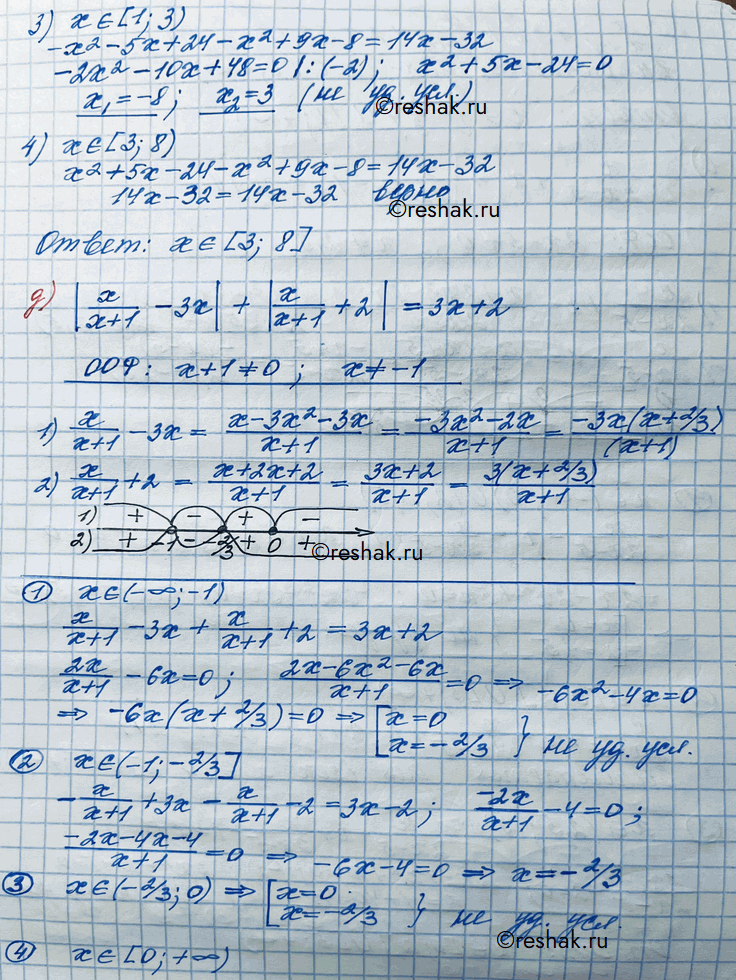 3) x∈[1; 3)
-x²-5x+24-x²+9x-8=14x-32
-2x²-10x+48=0 |:(-2); x²+5x-24=0
x₁=-8; x₂=3 (не уд. усл.)
©reshak.ru
4) x∈[3; 8)
x²+5x-24-x²+9x-8=14x-32
14x-32=14x-32 верно
©reshak.ru
Ответ: x∈[3; 8]
g) |x/(x+1) -3x| + |x/(x+1) +2| =3x+2
ООФ: x+1≠0; x≠-1
1) x/(x+1) -3x = (x-3x²-3x)/(x+1) = (-3x²-2x)/(x+1) = -3x(x+2/3)/(x+1)
2) x/(x+1) +2 = (x+2x+2)/(x+1) = (3x+2)/(x+1) = 3(x+2/3)/(x+1)
1) + - + -
2) + -1 - -2/3 + 0 +
©reshak.ru
① x∈(-∞; -1)
x/(x+1) -3x + x/(x+1) +2 =3x+2
2x/(x+1) -6x=0; (2x-6x²-6x)/(x+1) =0 ⇒ -6x²-4x=0
⇒ -6x(x+2/3)=0 ⇒ [x=0 x=-2/3 } не уд. усл.
② x∈(-1; -2/3]
-x/(x+1) +3x - x/(x+1) -2 =3x-2; -2x/(x+1) -4=0;
(-2x-4x-4)/(x+1) =0 ⇒ -6x-4=0 ⇒ x=-2/3
③ x∈(-2/3; 0) ⇒ [x=0 x=-2/3 } не уд. усл.
©reshak.ru
④ x∈[0; +∞)